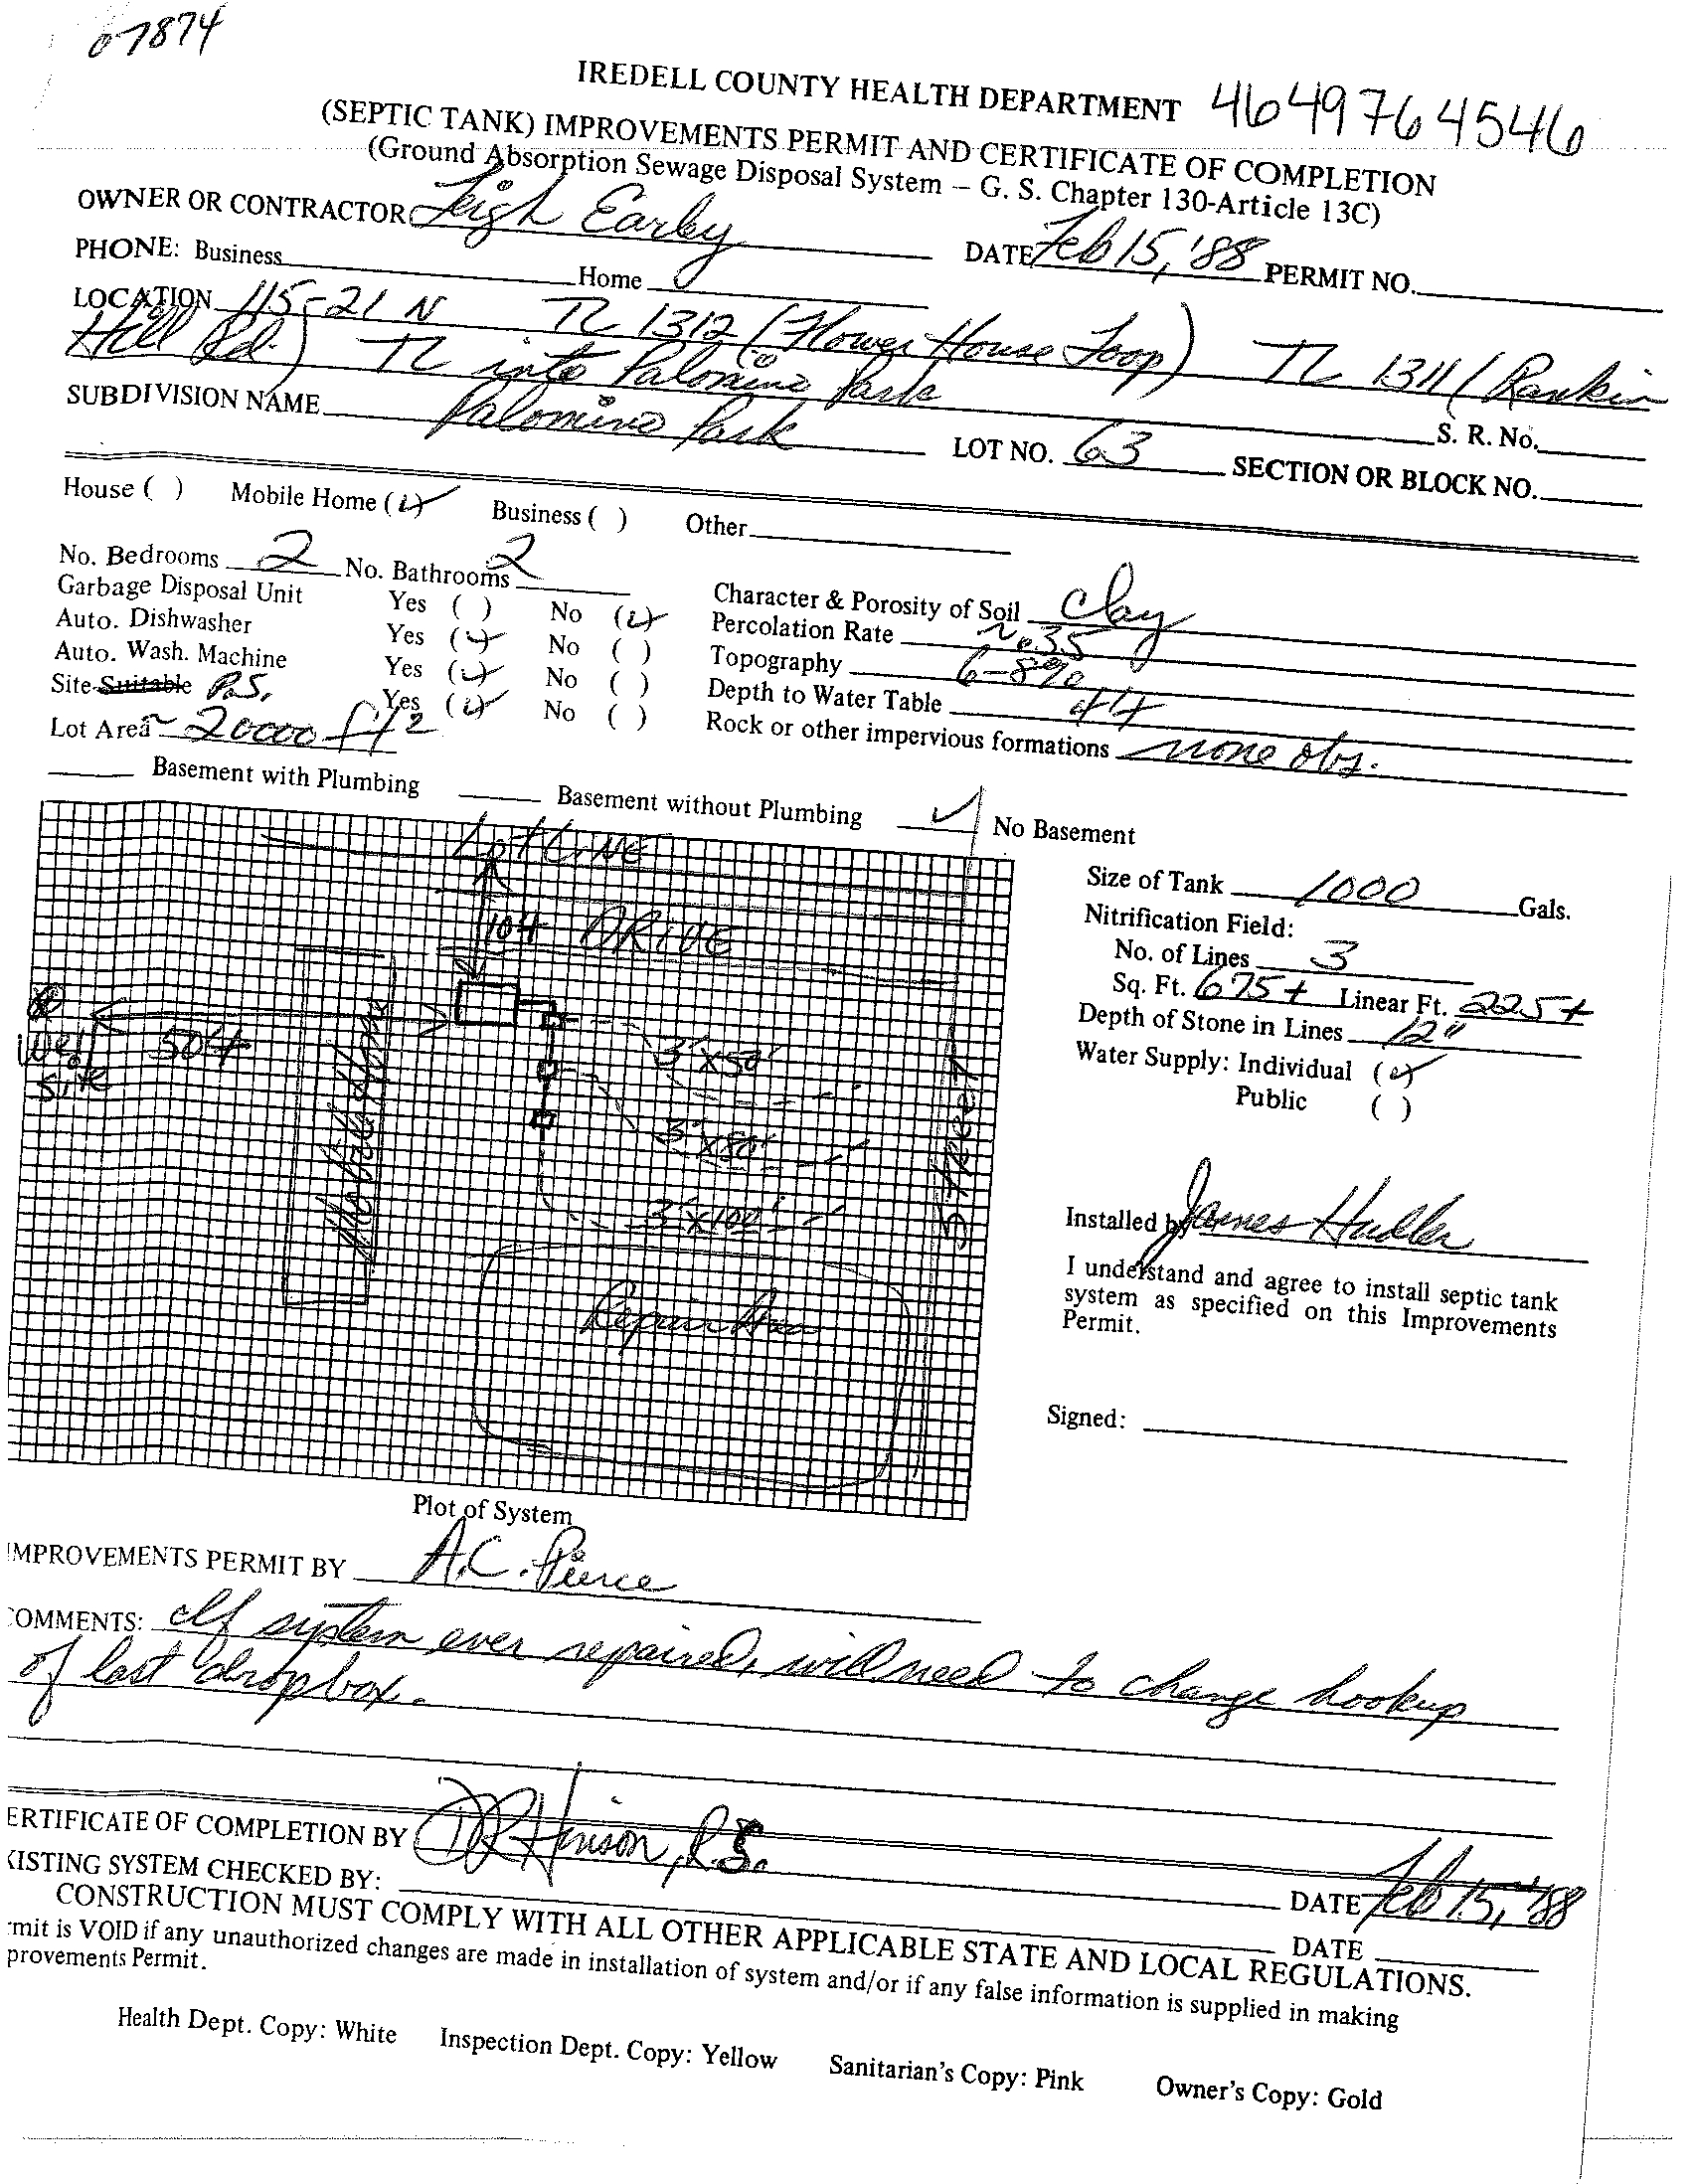 07874
IREDELL COUNTY HEALTH DEPARTMENT 4649764546
(SEPTIC TANK) IMPROVEMENTS PERMIT AND CERTIFICATE OF COMPLETION
(Ground Absorption Sewage Disposal System – G. S. Chapter 130-Article 13C)
OWNER OR CONTRACTOR Leigh Earley DATE Feb 15, '88 PERMIT NO.
PHONE: Business Home
LOCATION 115-21 N TL 1312 (Flower House Loop) TL 1311 (Rankin
Hill Rd.) TL into Palomino Park S. R. No.
SUBDIVISION NAME Palomino Park LOT NO. 63 SECTION OR BLOCK NO.
House ( ) Mobile Home (✓) Business ( ) Other
No. Bedrooms 2 No. Bathrooms 2
Garbage Disposal Unit Yes ( ) No (✓)
Auto. Dishwasher Yes (✓) No ( )
Auto. Wash. Machine Yes (✓) No ( )
Site Suitable P.S. Yes (✓) No ( )
Lot Area ~ 20000 ft2
Character & Porosity of Soil Clay
Percolation Rate ~.35
Topography 6-8%
Depth to Water Table 4+
Rock or other impervious formations none obs.
Basement with Plumbing Basement without Plumbing ✓ No Basement
Lot LINE
10+ DRIVE
Well Site
50+
Mobile Home
3'x50'
3'x80'
3'x100'
Street
Repair Area
Plot of System
Size of Tank 1000 Gals.
Nitrification Field:
No. of Lines 3
Sq. Ft. 675+ Linear Ft. 225+
Depth of Stone in Lines 12"
Water Supply: Individual (✓)
Public ( )
Installed by James Hadler
I understand and agree to install septic tank
system as specified on this Improvements
Permit.
Signed:
IMPROVEMENTS PERMIT BY A.C. Pierce
COMMENTS: If system ever repaired, will need to change hookup
of last dropbox.
ERTIFICATE OF COMPLETION BY DR Hinson, R.S. DATE Feb 15, '88
XISTING SYSTEM CHECKED BY: DATE
CONSTRUCTION MUST COMPLY WITH ALL OTHER APPLICABLE STATE AND LOCAL REGULATIONS.
rmit is VOID if any unauthorized changes are made in installation of system and/or if any false information is supplied in making
provements Permit.
Health Dept. Copy: White Inspection Dept. Copy: Yellow Sanitarian's Copy: Pink Owner's Copy: Gold